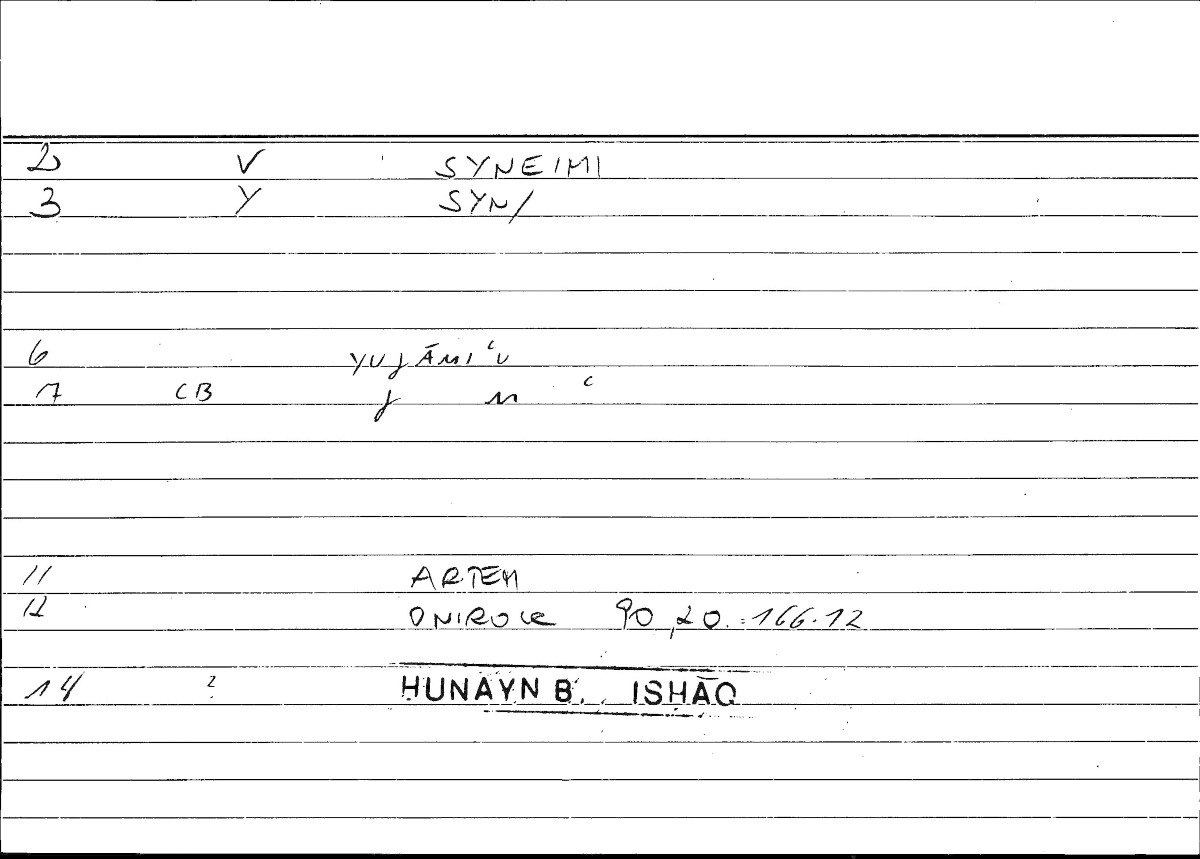 2 V SYNEIMI
3 Y SYN/
6 YUJĀMIʿU
7 CB J M ʿ
11 ARTEM
12 ONIROCR 90,20.=166.12
14 ? HUNAYN B. ISHĀQ